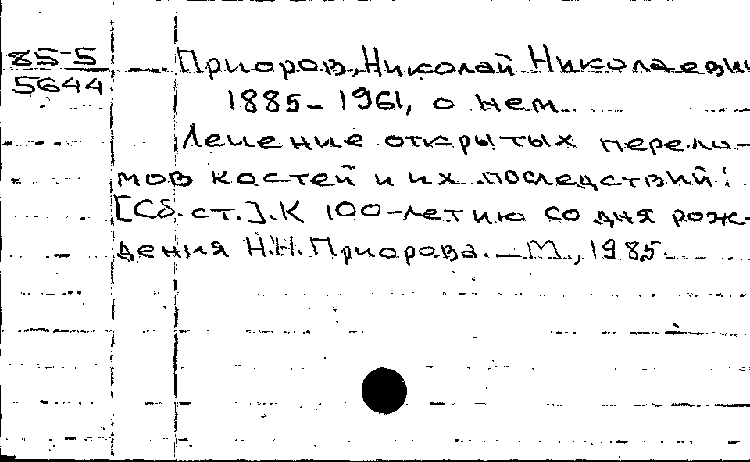 85-5
5644
Приоров, Николай Николаеви
1885-1961, о нем
Лечение открытых перело-
мов костей и их последствий:
[Сб. ст.]. К 100-летию со дня рож-
дения Н.Н. Приорова. — М., 1985